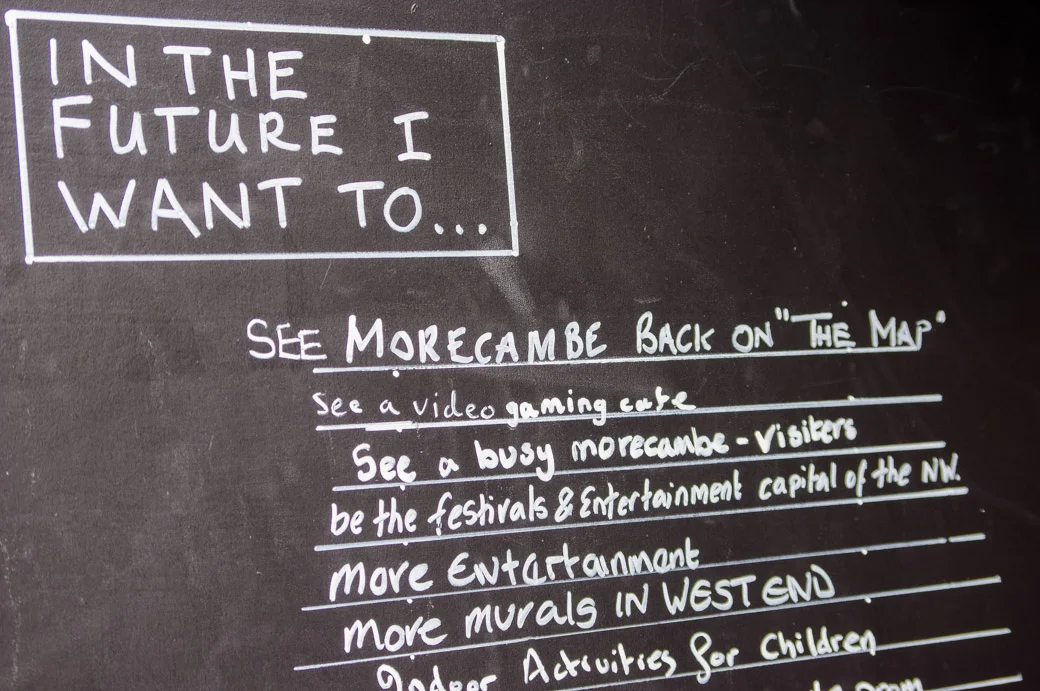 IN THE
FUTURE I
WANT TO...
SEE MORECAMBE BACK ON "THE MAP"
See a video gaming cafe
See a busy morecambe - Visiters
be the festivals & Entertainment capital of the NW.
more Entertainment
more murals IN WEST END
Indoor Activities for Children